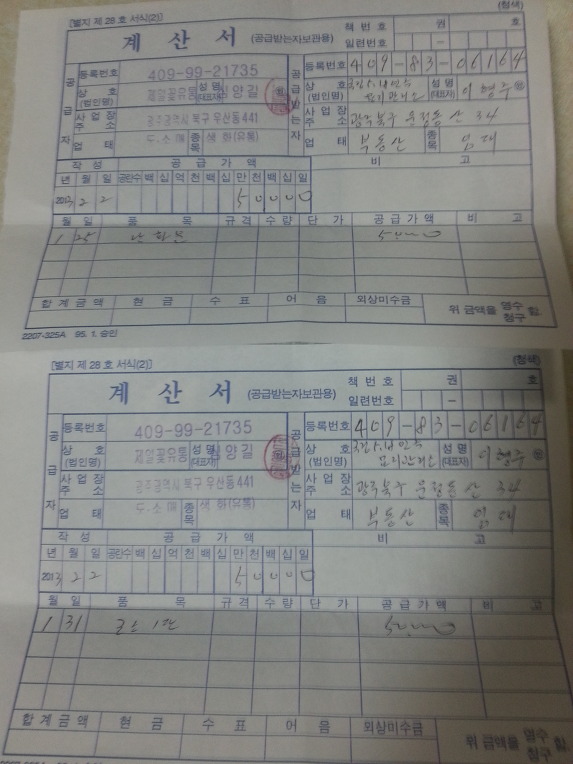 [별지 제 28 호 서식(2)]
(청색)
계 산 서 (공급받는자보관용)
책 번 호 권 호
일련번호 -
공급자
등록번호 409-99-21735
상 호 (법인명) 제일꽃유통 성 명 (대표자) 심양길
사 업 장 주 소 광주광역시 북구 우산동 441
업 태 도·소매 종목 생화(유통)
공급받는자
등록번호 409-83-06164
상 호 (법인명) 국립5.18민주 묘지관리소 성 명 (대표자) 이형주 ㊞
사 업 장 주 소 광주북구 운정동 산 34
업 태 부동산 종목 임대
작 성 공 급 가 액 비 고
년 월 일 공란수 백 십 억 천 백 십 만 천 백 십 일
2013 2 2 5 0 0 0 0
월 일 품 목 규 격 수 량 단 가 공 급 가 액 비 고
1 25 50000
합 계 금 액 현 금 수 표 어 음 외상미수금 위 금액을 영수 청구 함.
2207-325A 95. 1. 승인
[별지 제 28 호 서식(2)]
(청색)
계 산 서 (공급받는자보관용)
책 번 호 권 호
일련번호 -
공급자
등록번호 409-99-21735
상 호 (법인명) 제일꽃유통 성 명 (대표자) 심양길
사 업 장 주 소 광주광역시 북구 우산동 441
업 태 도·소매 종목 생화(유통)
공급받는자
등록번호 409-83-06164
상 호 (법인명) 국립5.18민주 묘지관리소 성 명 (대표자) 이형주 ㊞
사 업 장 주 소 광주북구 운정동 산 34
업 태 부동산 종목 임대
작 성 공 급 가 액 비 고
년 월 일 공란수 백 십 억 천 백 십 만 천 백 십 일
2013 2 2 5 0 0 0 0
월 일 품 목 규 격 수 량 단 가 공 급 가 액 비 고
1 31 50000
합 계 금 액 현 금 수 표 어 음 외상미수금 위 금액을 영수 청구 함.